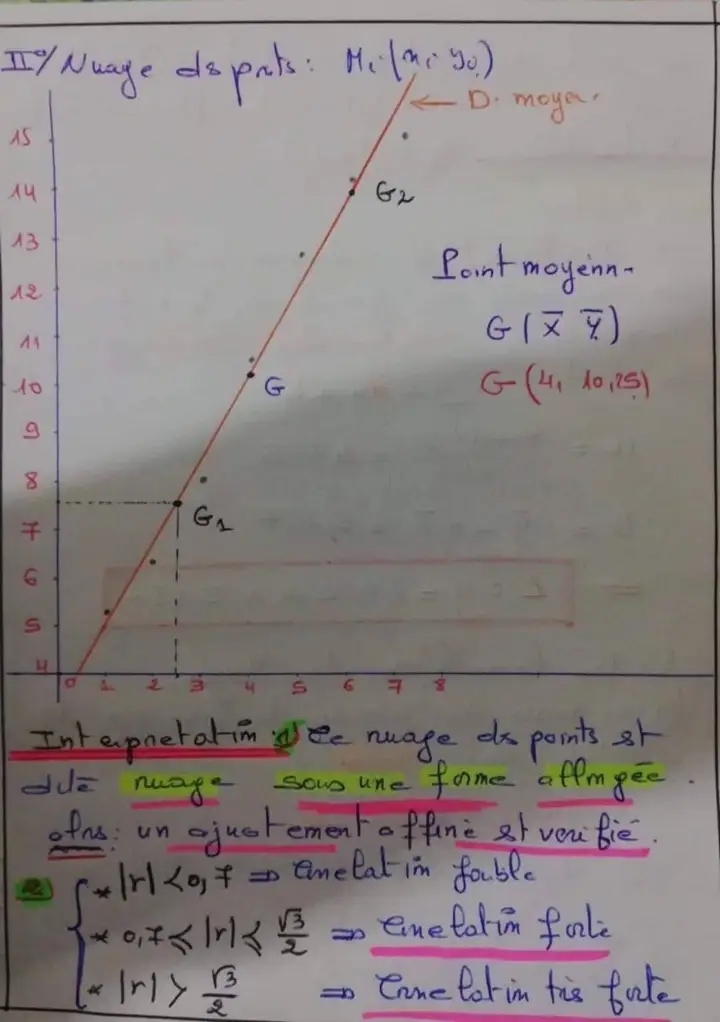 II°/ Nuage ds pnts : Mi (xi yi)
← D. moyen.
15
14
G2
13
Point moyenn-
12
G ( x̄ ȳ )
11
10
G
G (4, 10,25)
9
8
G1
7
6
5
4
0 1 2 3 4 5 6 7 8
Interpretation : 1) Ce nuage ds points est
dite nuage sous une forme allongée.
alrs : un ajustement affine est verifié.
2) * |r| < 0,7 ⇒ Correlation faible
* 0,7 ≤ |r| ≤ √3/2 ⇒ Correlation forte
* |r| > √3/2 ⇒ Correlation très forte